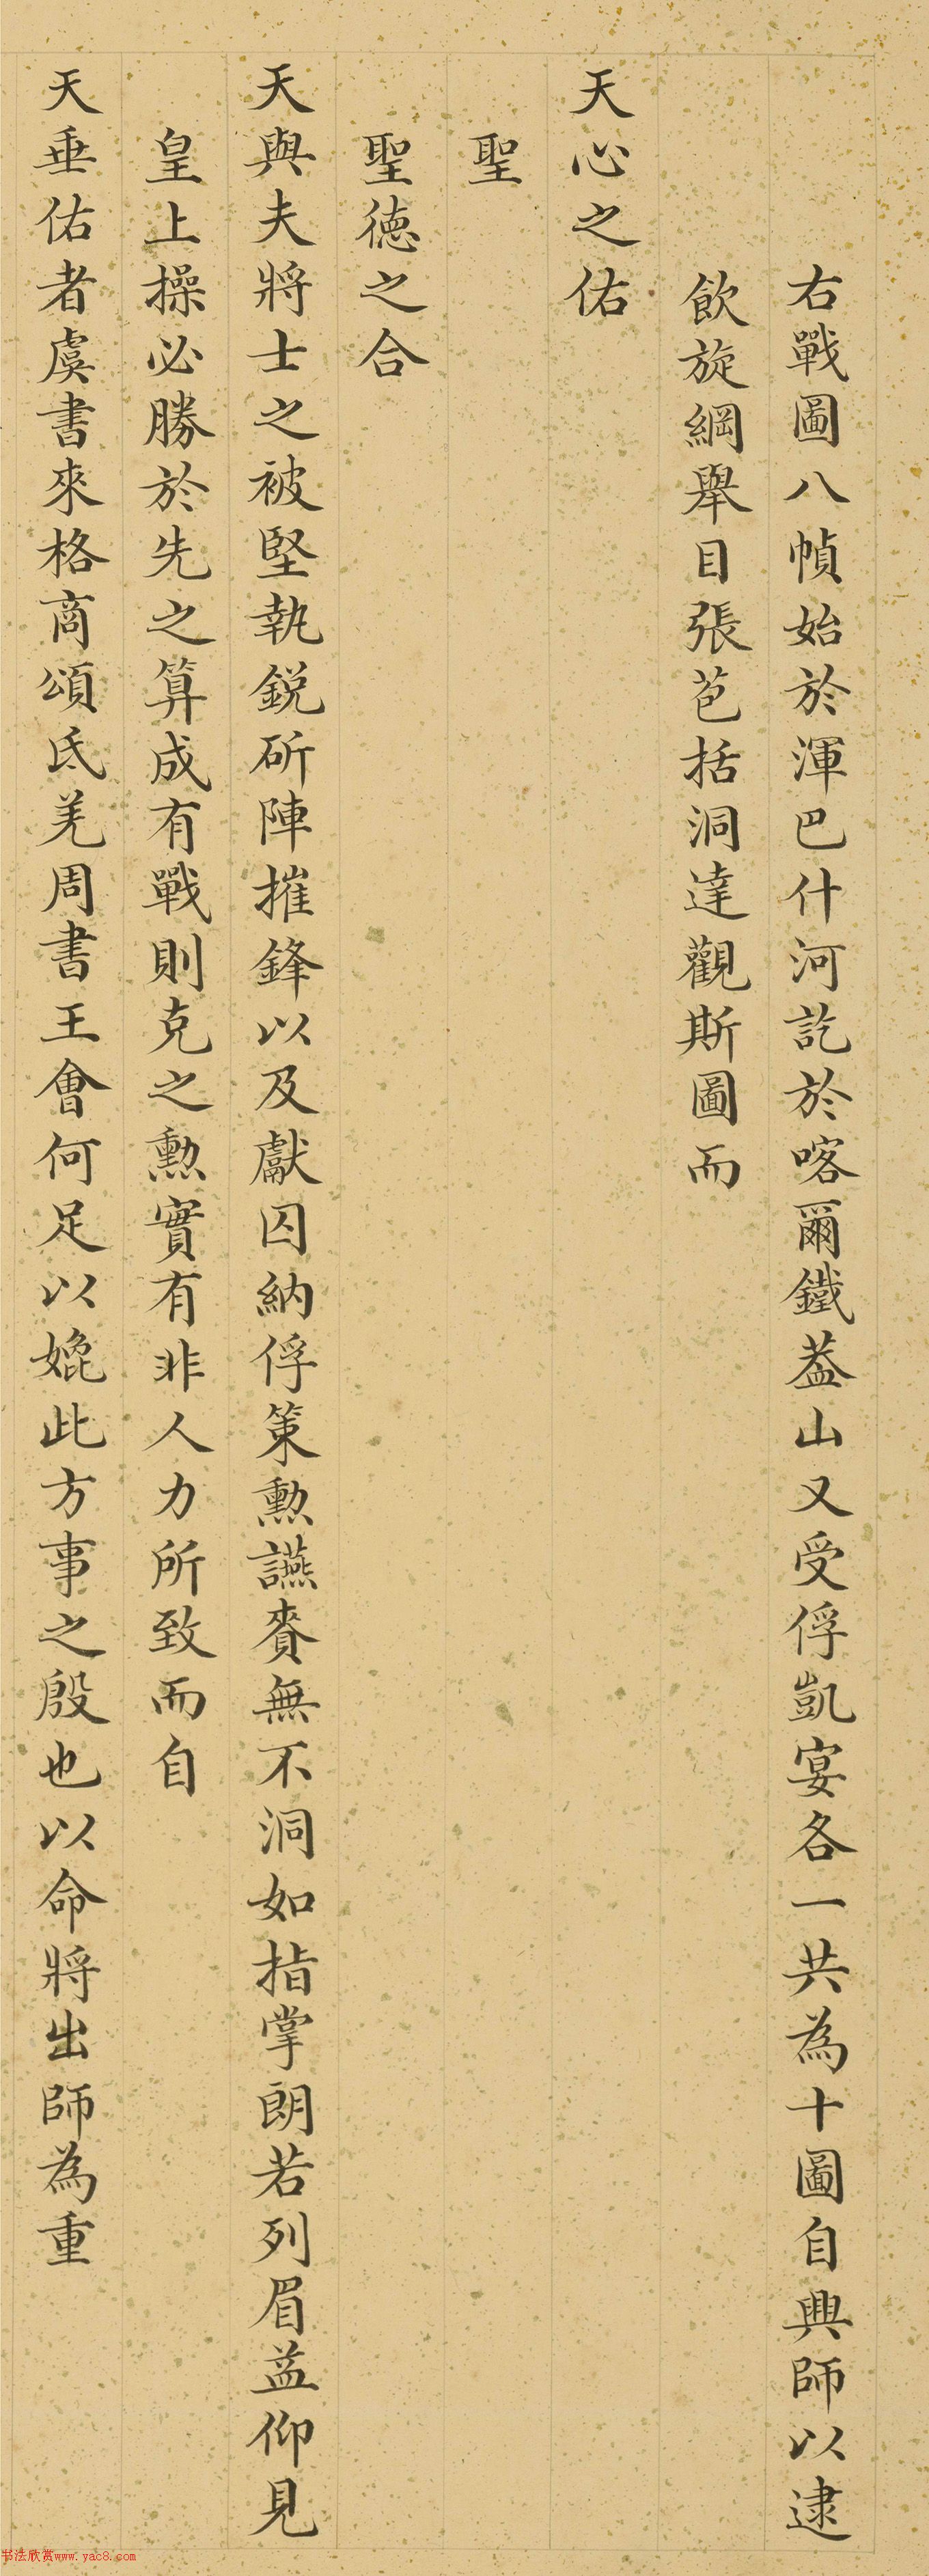 右戰圖八幀始於渾巴什河訖於喀爾鐵葢山又受俘凱宴各一共為十圖自興師以逮
飲旋綱舉目張苞括洞達觀斯圖而
天心之佑
聖
聖德之合
天與夫將士之被堅執銳斫陣摧鋒以及獻囚納俘策勲讌賚無不洞如指掌朗若列眉益仰見
皇上操必勝於先之算成有戰則克之勲實有非人力所致而自
天垂佑者虞書來格商頌氐羌周書王會何足以媲此方事之殷也以命將出師為重
书法欣赏www.yac8.com